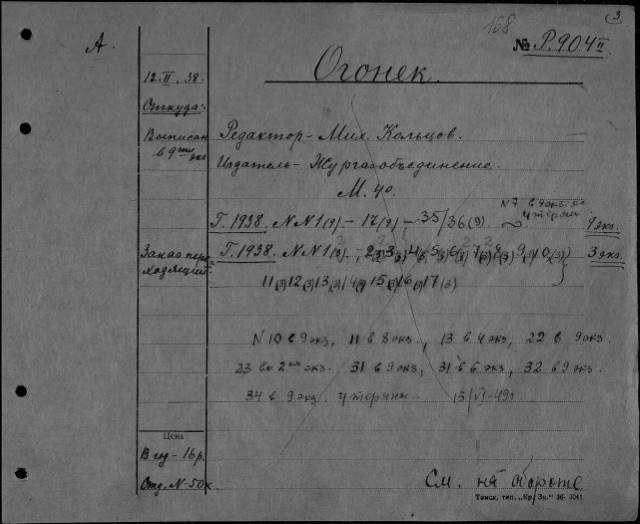 3
168
А.
№ Р.904 II
12.II.38.
Огонек.
Откуда:
Выписан в 9-ти экз
Редактор - Мих. Кольцов.
Издатель - Жургазобъединение.
М. 40.
N7 в 9 экз
утерян
Г. 1938. NN 1(9) - 17(9) - 35/36(9)
9 экз.
Г. 1938. NN 1(3), 2(3) 3(3) 4(3) 5(3) 6(3) 7(3) 8(3) 9(3) 10(3)
3 экз.
11(3) 12(3) 13(3) 14(3) 15(3) 16(3) 17(3)
N 10 в 9 экз, 11 в 8 экз., 13 в 4 экз, 22 в 9 экз.
23 во 2-ом экз. 31 в 9 экз, 31 в 6 экз, 32 в 9 экз.
34 в 9 экз. утеряны 15/VI-49г
Цена
В год - 16 р.
Отд. N - 50 к.
См. на обороте
Томск, тип. „Кр. Зн."